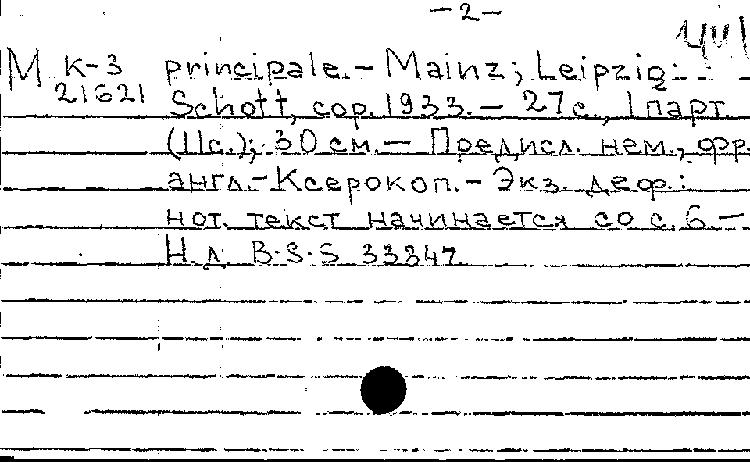 -2-
М К-3 principale.- Mainz; Leipzig:
21621 Schott, cop. 1933.- 27с., 1 парт.
(11с.); 30 см.- Предисл. нем., фр.
англ.- Ксерокоп.- Экз. деф.:
нот. текст начинается со с. 6.-
Н.д. B·S·S 33347.